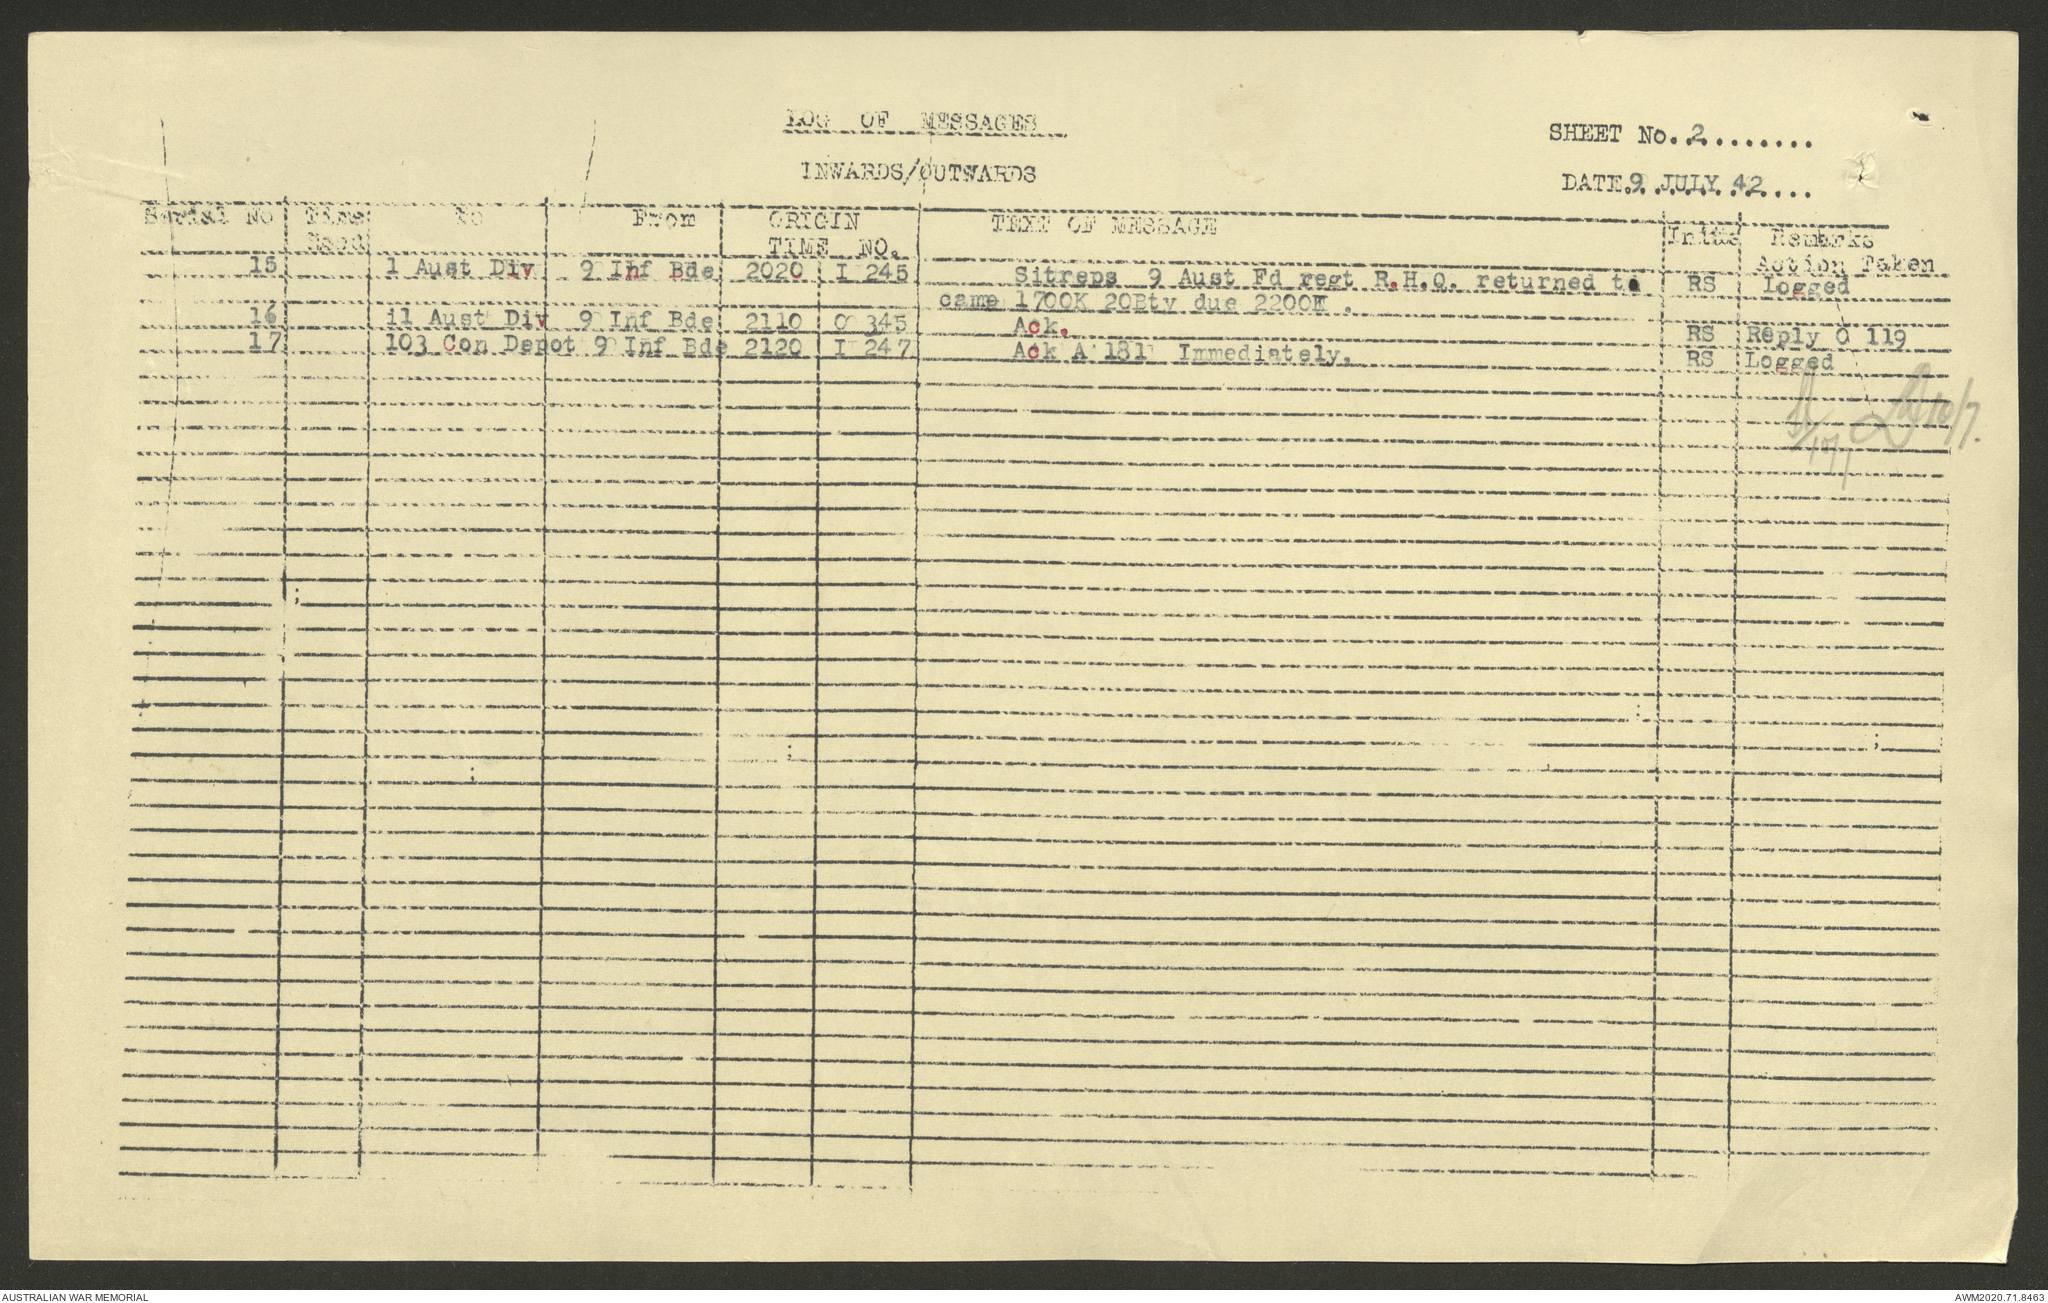 LOG OF MESSAGES
INWARDS/OUTWARDS
SHEET No. 2
DATE 9 JULY 42
Serial No Time To From ORIGIN TEXT OF MESSAGE Remarks
TIME NO. Action Taken
15 1 Aust Div 9 Inf Bde 2020 I 245 Sitreps 9 Aust Fd regt R.H.Q. returned to RS Logged
came 1700K 20Bty due 2200K .
16 i1 Aust Div 9 Inf Bde 2110 O 345 Ack. RS Reply O 119
17 103 Con Depot 9 Inf Bde 2120 I 247 Ack A 181 Immediately. RS Logged
10/7.
AUSTRALIAN WAR MEMORIAL
AWM2020.71.8463